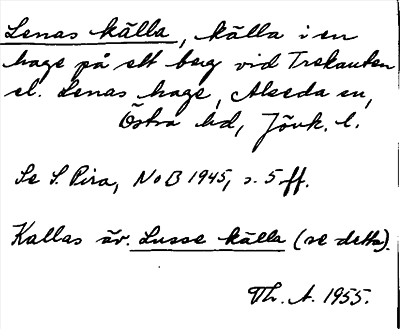 Lenas källa, källa i en
hage på ett berg vid Trekanten
el. Lenas hage, Alseda sn,
Östra hd, Jönk. l.
Se S. Pira, NoB 1945, s. 5 ff.
Kallas äv. Lusse källa (se detta).
Th. A. 1955.